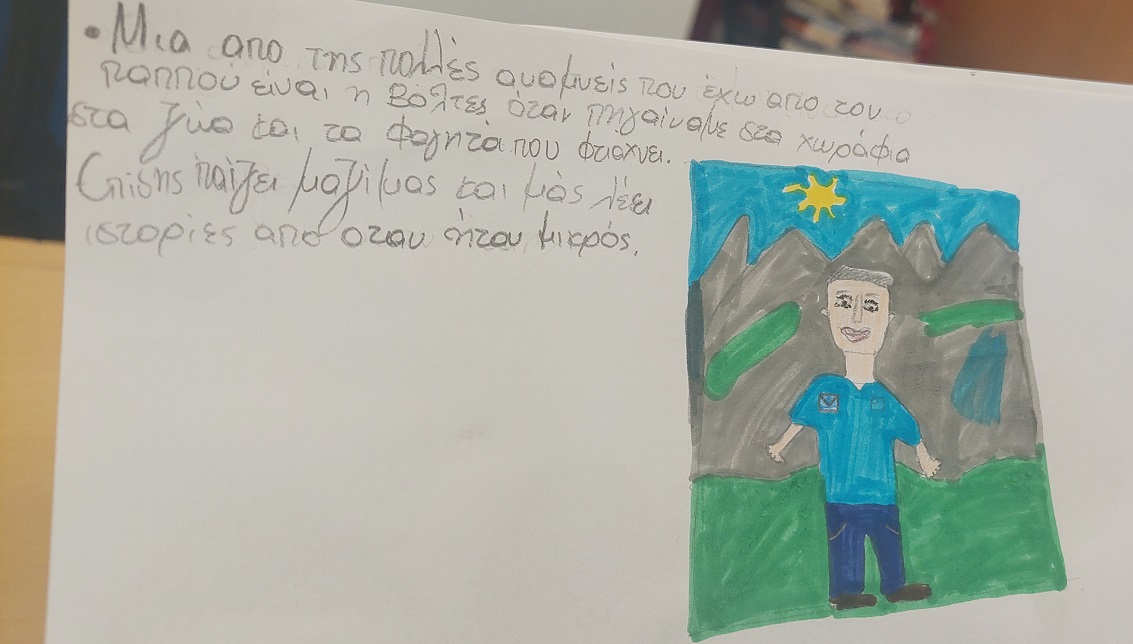 • Μια απο της πολλές αναμνείς που έχω απο τον
παππού είναι η βόλτες όταν πηγαίναμε στα χωράφια
στα ζώα και τα φαγητά που φτιάχνει.
Επίσης παίζει μαζί μας και μάς λέει
ιστορίες από όταν ήταν μικρός.